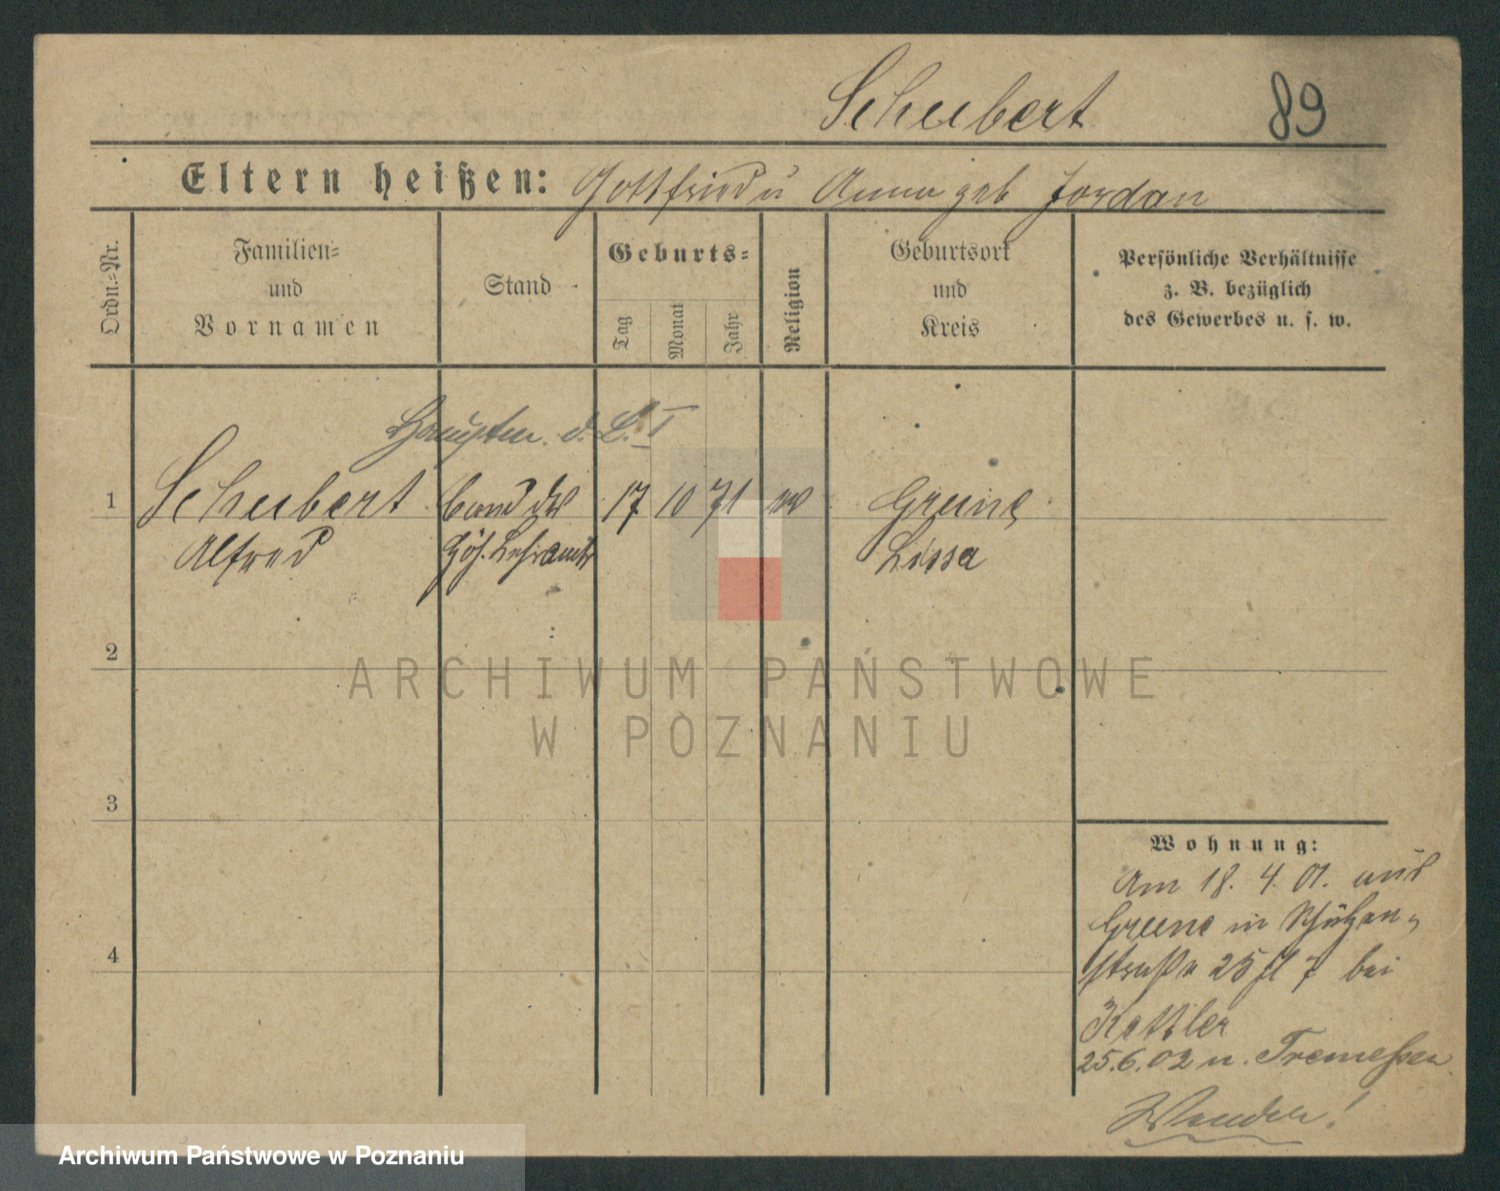 Schubert 89
Eltern heißen: Gottfried u Anna geb Jordan
Ordn.-Nr.
Familien-
und
Vornamen
Stand
Geburts-
Tag
Monat
Jahr
Religion
Geburtsort
und
Kreis
Persönliche Verhältnisse
z. B. bezüglich
des Gewerbes u. s. w.
Hauptm. d. L. I
1 Schubert Cand des 17 10 71 Grune
Alfred höh. Lehramts Lissa
2
3
4
ARCHIWUM PAŃSTWOWE
W POZNANIU
Wohnung:
Am 18. 4. 01. aus
Grune in Schützen-
straße 25 II 7 bei
Kettler
25.6.02 n. Tremessen
Wenden!
Archiwum Państwowe w Poznaniu